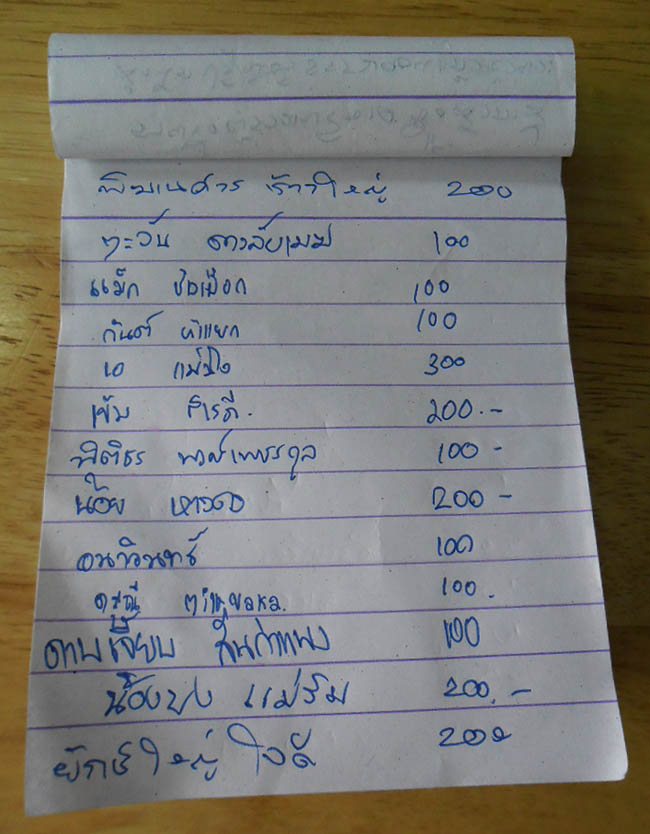 พิฆเนศวร ร้าวใหญ่ 200
ตะวัน ดาวลัยเมฆ 100
แม็ก ช้างเผือก 100
กันต์ ห้าแยก 100
เอ แม่โจ้ 300
เข้ม สารภี. 200.-
พิติธร พงศ์เพชรกุล 100 -
น้อย หางดง 200 -
อนาวินทร์ 100
ดรุณี 100.
ดาบเจี๊ยบ สันกำแพง 100
น้องปุง แม่ริม 200.-
ยักษ์ใหญ่ ใจดี 200